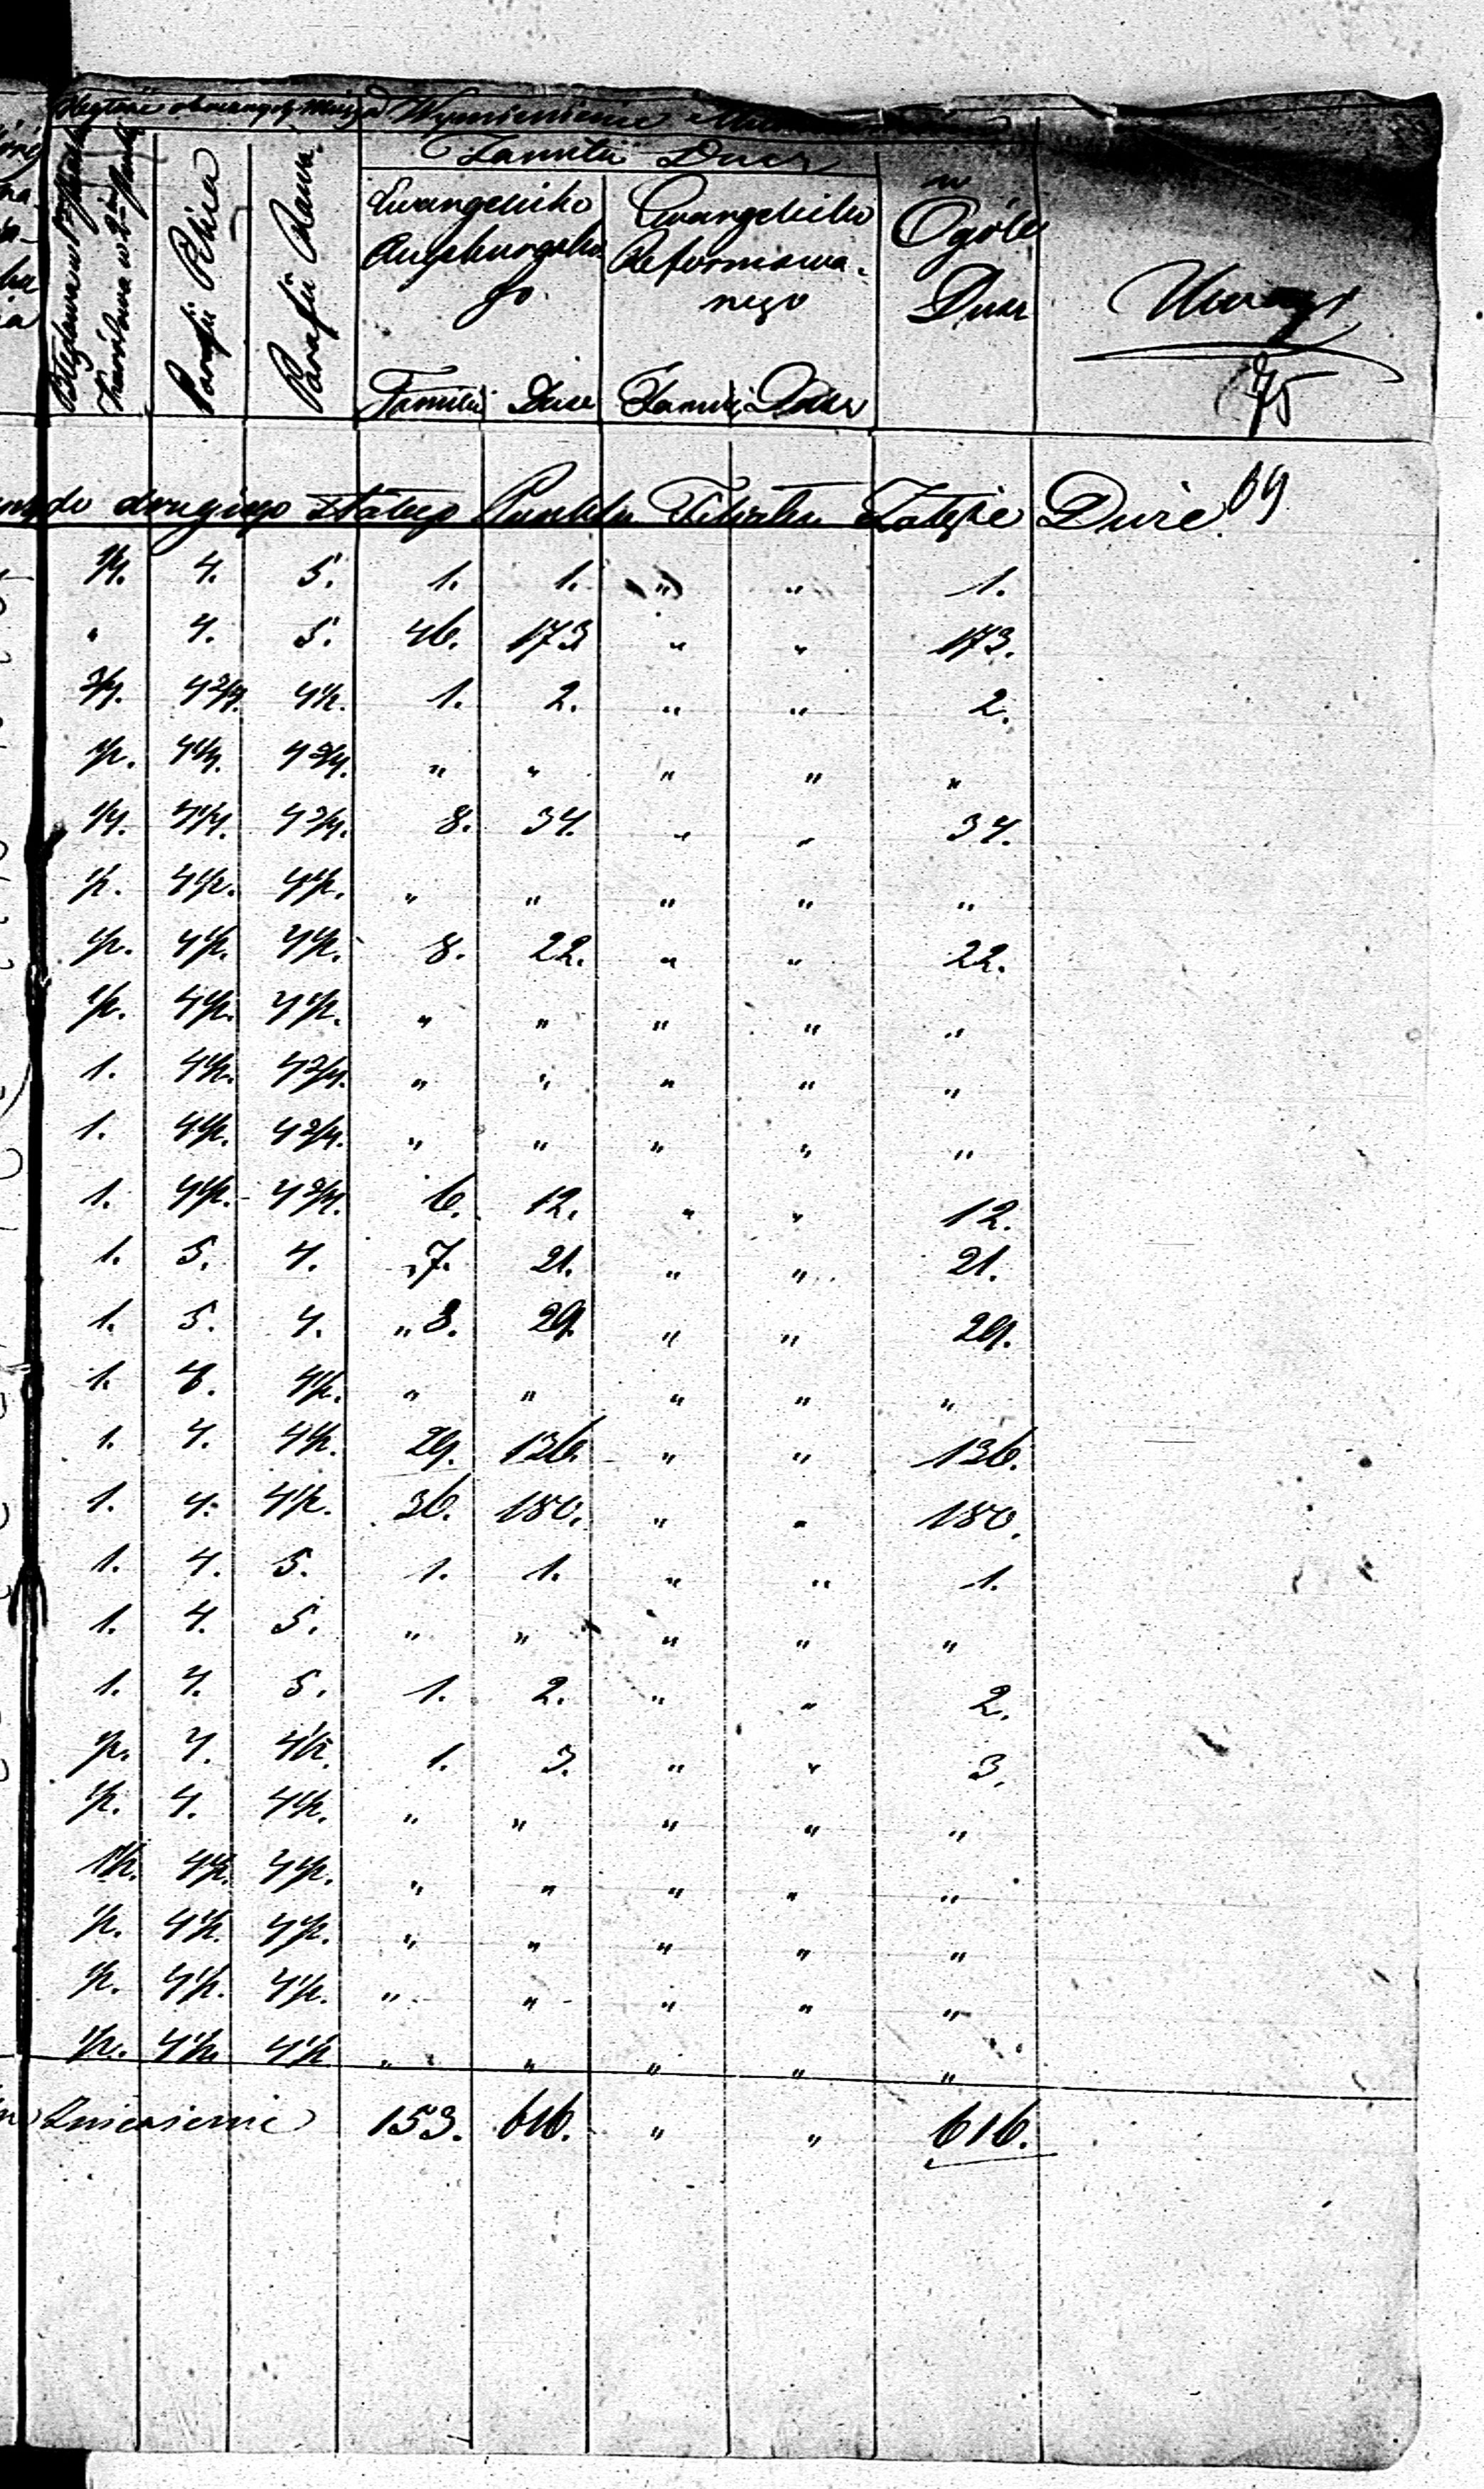 Wymienienie
Familii Dusz
Ewangelicko Augsburgskiego
Ewangelicko Reformowanego
w Ogóle Dusz
Uwagi
75
Parafii
Parafii
Familii Dusz Familii Dusz
do drugiego stałego Punktu Filiału Załęże Duże 69
1/4. 4. 5. 1. 1. " " 1.
" 4. 5. 46. 173 " " 173.
3/4. 4 3/4. 4 1/2. 1. 2. " " 2.
1/2. 4 1/4. 4 3/4. " " " " "
1/4. 4 1/4. 4 3/4. 8. 34. " " 34.
1/2. 4 1/2. 4 1/2. " " " " "
1/2. 4 1/2. 4 1/2. 8. 22. " " 22.
1/2. 4 1/2. 4 1/2. " " " " "
1. 4 1/2. 4 3/4. " " " " "
1. 4 1/2. 4 3/4. " " " " "
1. 4 1/2. 4 3/4. 6. 12. " " 12.
1. 5. 4. "7. 21. " " 21.
1. 5. 4. "8. 29. " " 29.
1. 4. 4 1/2. " " " " "
1. 4. 4 1/2. 29. 136. " " 136.
1. 4. 4 1/2. 36. 180. " " 180.
1. 4. 5. 1. 1. " " 1.
1. 4. 5. " " " " "
1. 4. 5. 1. 2. " " 2.
1/2. 4. 4 1/2. 1. 3. " " 3.
1/2. 4. 4 1/2. " " " " "
1 1/2. 4 1/2. 4 1/2. " " " " "
1/2. 4 1/2. 4 1/2. " " " " "
1/2. 4 1/2. 4 1/2. " " " " "
1/2. 4 1/2. 4 1/2 " " " " "
Zniesienie 153. 616. " " 616.